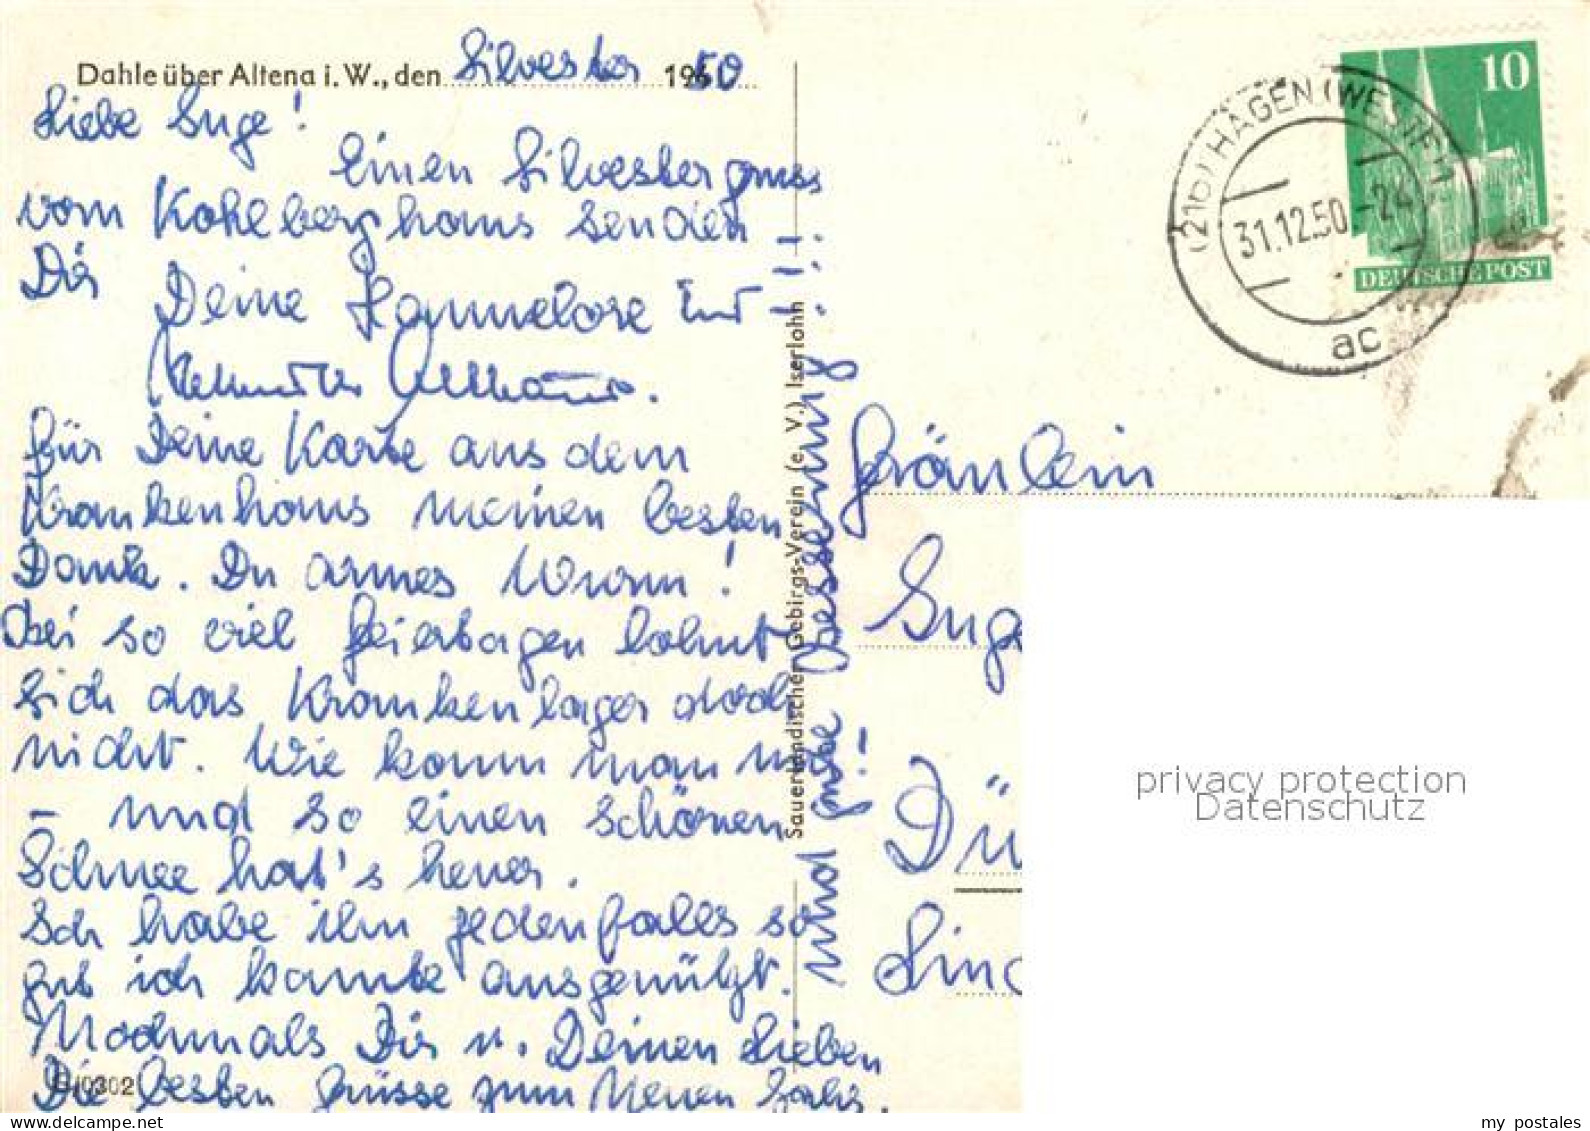 Dahle über Altena i. W., den Silvester 1950
Liebe Inge!
Einen Silvestergruss
vom Kohlberghaus senden
Dir
Deine Hannelore und
für Deine Karte aus dem
Krankenhaus meinen besten
Dank. Du armes Wurm!
Bei so viel Feiertagen lohnt
sich das Krankenlager doch
nicht. Wie kann man nur
- und so einen schönen
Schnee hat's heuer.
Ich habe ihn jedenfalls so
gut ich konnte ausgenützt.
Nochmals Dir u. Deinen Lieben
Die besten Grüsse zum Neuen Jahr.
und gute Besserung!
Sauerländischer Gebirgs-Verein (e. V.), Iserlohn
(21b) HAGEN (WESTF) 1
31.12.50-24
ac
10
DEUTSCHE POST
Fräulein
Inge
Dü
Lind
privacy protection
Datenschutz
my postales